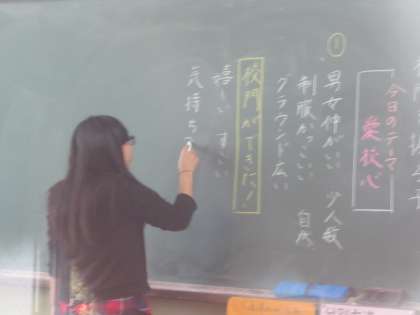 今日のテーマ
愛校心
①
男女仲がいい 少人数
制服かっこいい 自然
グラウンド広い
校門ができた!
嬉しい すごい
気持ち